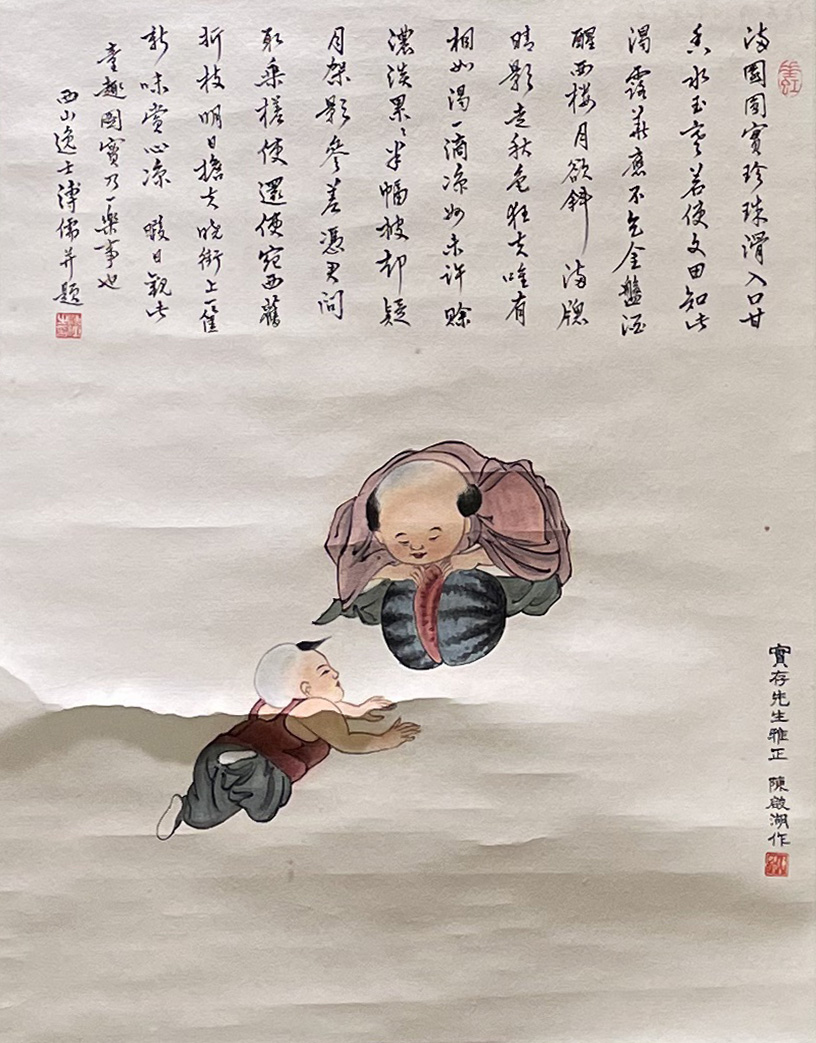 圓實珍珠滑入口甘
香水玉寒若使文園知此
渴露華應不乞金盤酒
醒西樓月欲斜 滿牕
晴影走秋色狂夫唯有
相如渴一滴涼如未許賒
濃淡累〻半幅披却疑
月架影參差憑君問
取乘槎使還使宛西舊
折枝明日擔夫曉街上一筐
新味賞心涼 暇日觀此
童趣圖實乃一樂事也
西山逸士溥儒并題
實存先生雅正 陳啟湖作